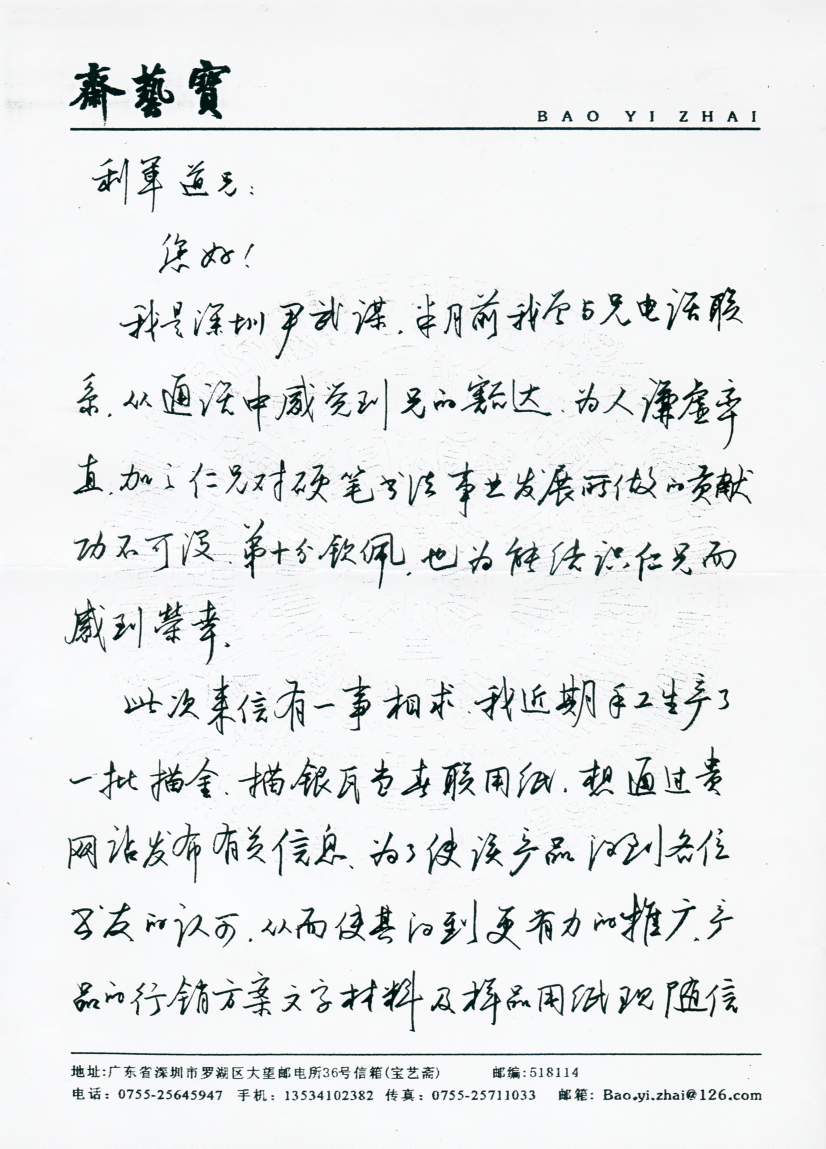 齋藝寶
BAO YI ZHAI
利軍道兄：
您好！
我是深圳尹武谋，半月前我曾与兄电话联
系，从通话中感觉到兄的豁达、为人谦虚率
直，加之仁兄对硬笔书法事业发展所做的贡献
功不可没，弟十分钦佩，也为能结识仁兄而
感到荣幸。
此次来信有一事相求，我近期手工生产了
一批描金、描银瓦当春联用纸，想通过贵
网站发布有关信息，为了使该产品得到各位
书友的认可，从而使其得到更有力的推广，产
品的行销方案文字材料及样品用纸现随信
地址:广东省深圳市罗湖区大望邮电所36号信箱(宝艺斋) 邮编:518114
电话：0755-25645947 手机：13534102382 传真：0755-25711033 邮箱：Bao.yi.zhai@126.com